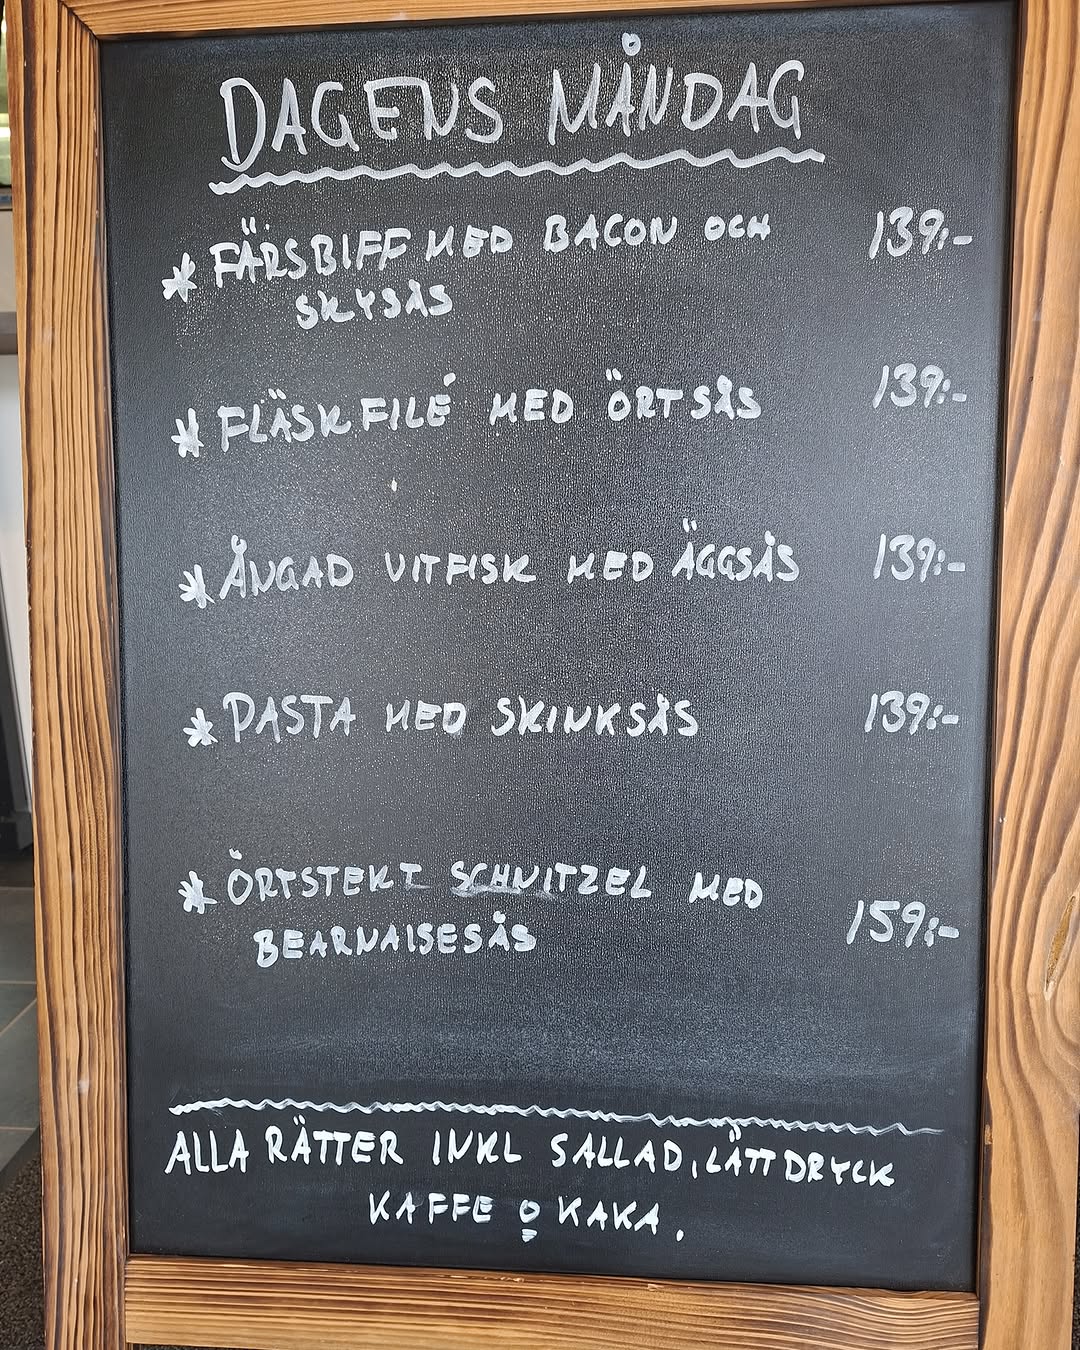 DAGENS MÅNDAG
* FÄRSBIFF MED BACON OCH 139:-
SKYSÅS
* FLÄSKFILÉ MED ÖRTSÅS 139:-
* ÅNGAD VITFISK MED ÄGGSÅS 139:-
* PASTA MED SKINKSÅS 139:-
* ÖRTSTEKT SCHNITZEL MED 159:-
BEARNAISESÅS
ALLA RÄTTER INKL SALLAD, LÄTTDRYCK
KAFFE o KAKA.